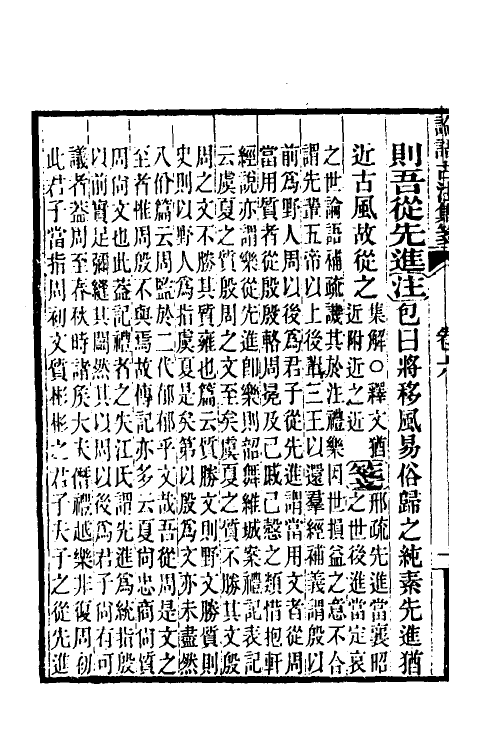 則吾從先進注包曰將移風易俗歸之純素先進猶
近古風故從之集解○釋文猶近附近之近箋邢疏先進當襄昭之世後進當定哀
之世論語補疏譏其於注禮樂因世損益之意不合
謂先輩五帝以上後輩三王以還羣經補義謂殷以
前爲野人周以後爲君子從先進謂當用文者從周
當用質者從殷殷輅周冕及已戚已愨之類惜抱軒
經說亦謂樂從先進卽樂則韶舞維城案禮記表記
云虞夏之質殷周之文至矣虞夏之質不勝其文殷
周之文不勝其質雍也篇云質勝文則野文勝質則
史則以野人爲指虞夏是矣第以殷爲文亦未盡然
八佾篇云周監於二代郁郁乎文哉吾從周是文之
至者惟周殷不與焉故傳記亦多云夏尙忠商尙質
周尙文也此葢記禮者之失江氏謂先進爲統指殷
以前實足彌縫其闕然其以周以後爲君子尙有可
議者葢周至春秋時諸矦大夫僭禮越樂非復周初
此君子當指周初文質彬彬之君子夫子之從先進
論語古注集箋
卷六
一